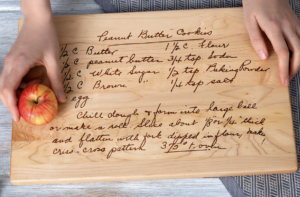 Peanut Butter Cookies
½ C Butter 1½ C. Flour
½ C peanut butter ¾ tsp Soda
½ C White Sugar ½ tsp Baking Powder
½ C Brown " ¼ tsp salt
1 egg
Chill dough & form into large ball
or make a roll. Slice about thick
and flatten with fork dipped in flour, make
criss-cross pattern 375° oven